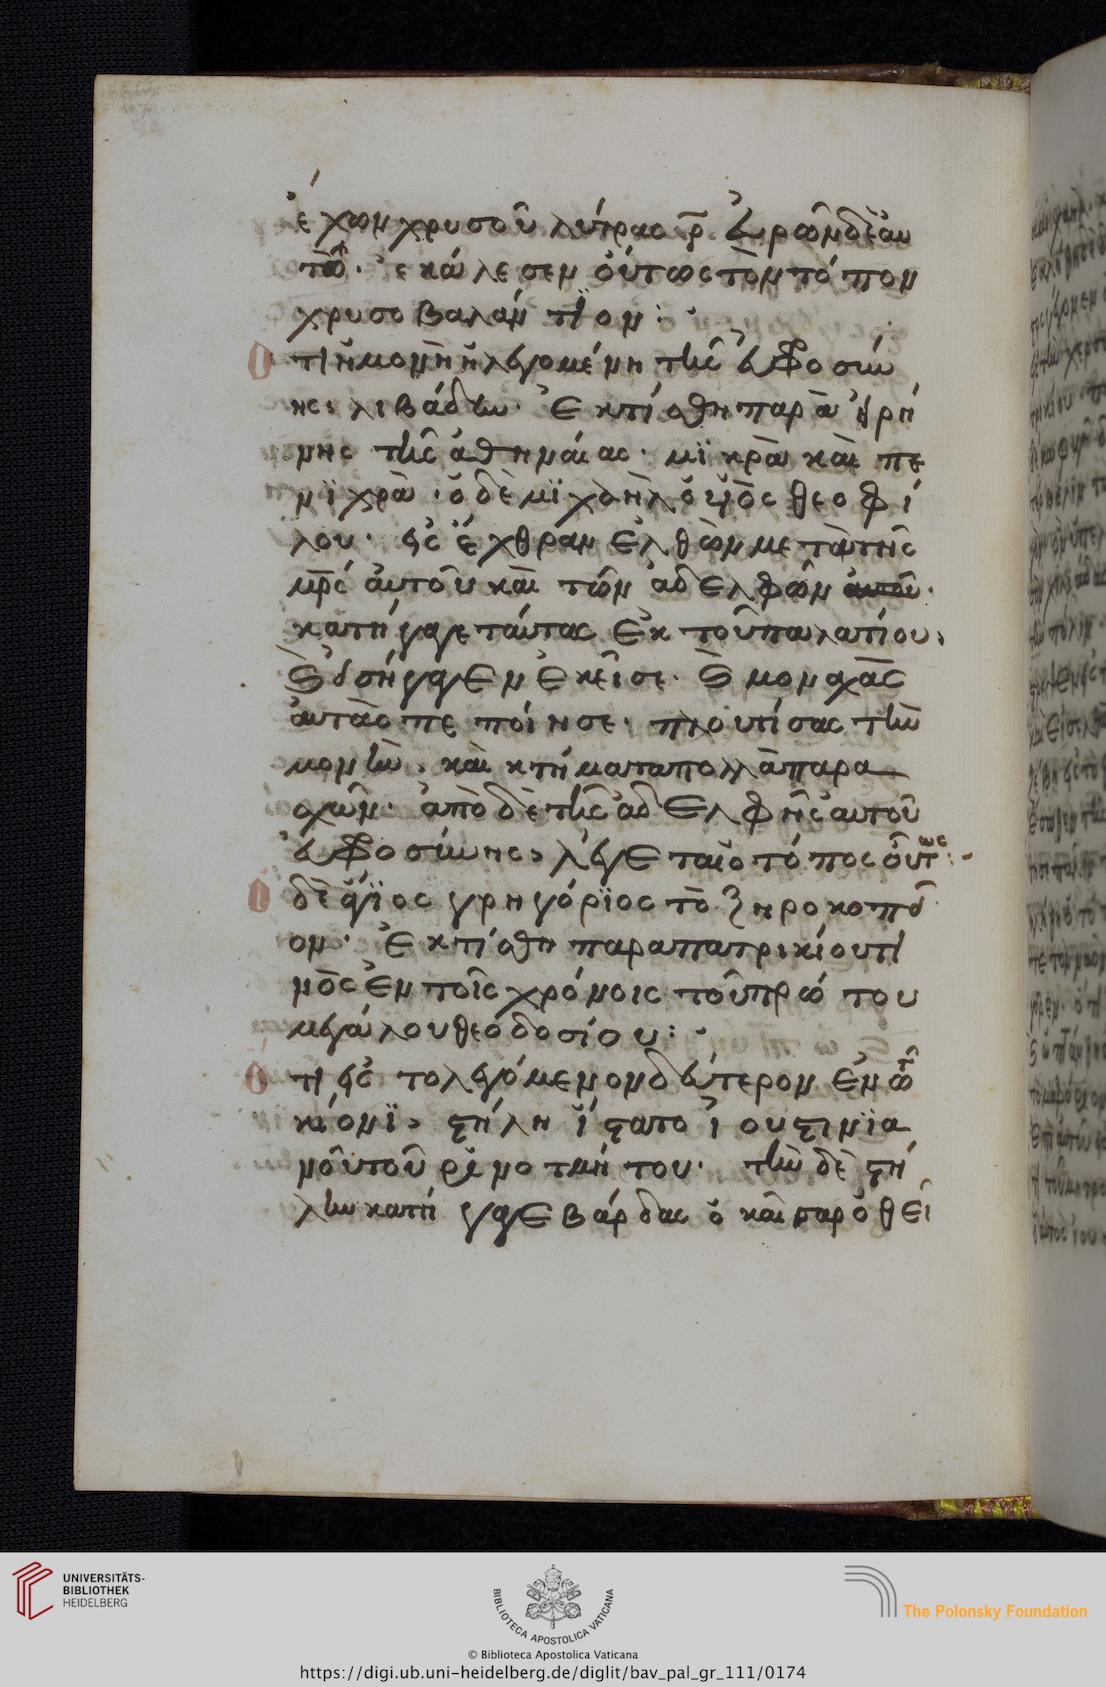 ἔχων χρυσοῦ λύτρας ρ̄. εὑρὼν δὲ αυ
τὸ. ἐκάλεσεν οὕτως τὸν τόπον
χρυσοβαλάντϊον:
Ὅτι ἡ μονὴ ἡ λεγομένη τῆς εὐφροσύ
νης, λιβάδιν. Ἐκτίσθη παρὰ εἰρή
νης τῆς ἀθηναίας. μϊκρὰ καὶ πε
νϊχρὰ. ὁ δὲ μϊχαὴλ ὁ υἱὸς θεοφί
λου. εἰς ἔχθραν ἐλθὼν μετὰ τῆς
μρ̄ς αὐτοῦ καὶ τῶν ἀδελφῶν αὐτοῦ.
κατήγαγε ταύτας ἐκ τοῦ παλατίου,
καὶ εἰσήγαγεν ἐκεῖσε. καὶ μοναχὰς
αὐτὰς πεποίησε. πλουτίσας τὴν
μονὴν, καὶ κτήματα πολλὰ παρα
σχῶν. ἀπὸ δὲ τῆς ἀδελφῆς αὐτοῦ
εὐφροσύνης, λέγεται ὁ τόπος οὕτως:
Ὁ δὲ ἅγϊος γρηγόρϊος τὸ ξηροκοπϊ
ον. Ἐκτίσθη παρὰ πατρικίου τι
νὸς ἐν τοῖς χρόνοις τοῦ πρώτου
μεγάλου θεοδοσίου:
Ὅτι εἰς τὸ λεγόμενον δεύτερον ἐν ᾧ
κιόνϊ, στήλη ἵστατο ἰουστινϊα
νοῦ τοῦ ῥινοτμήτου. τὴν δὲ στή
λην κατήγαγε βάρδας ὁ καῖσαρ ὁ θεῖ
UNIVERSITÄTS-
BIBLIOTHEK
HEIDELBERG
BIBLIOTECA APOSTOLICA VATICANA
The Polonsky Foundation
© Biblioteca Apostolica Vaticana
https://digi.ub.uni-heidelberg.de/diglit/bav_pal_gr_111/0174